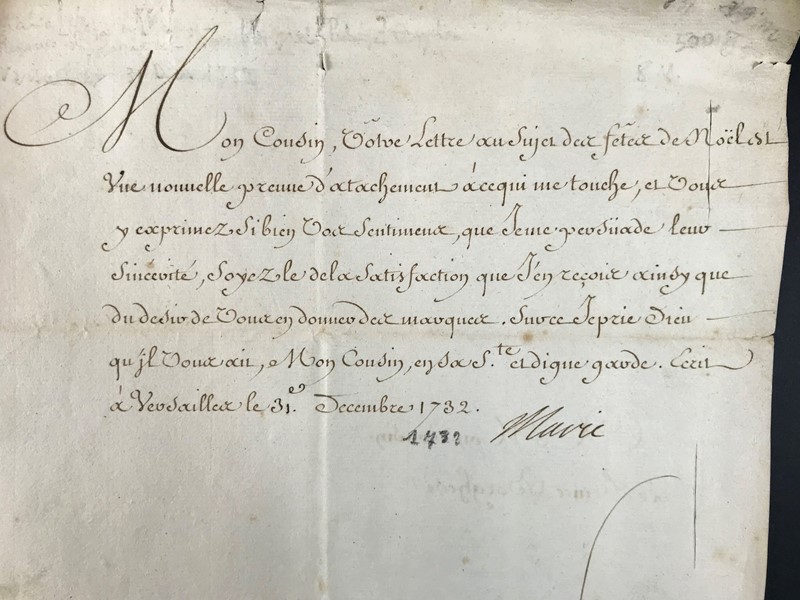 Mon Cousin, Vôtre Lettre au sujet des fêtes de Noël est
Vne nouuelle preuue d'atachement à ce qui me touche, et Vous
y exprimez si bien Vos sentimens, que Je me persüade leur
sincérité, soyez le de la satisfaction que J'en reçois ainsy que
du desir de Vous en donner des marques. Sur ce Je prie Dieu
qu'jl Vous ait, Mon Cousin, en sa S.te et digne garde. Ecrit
à Versailles le 31.e Decembre 1732.
1732 Marie